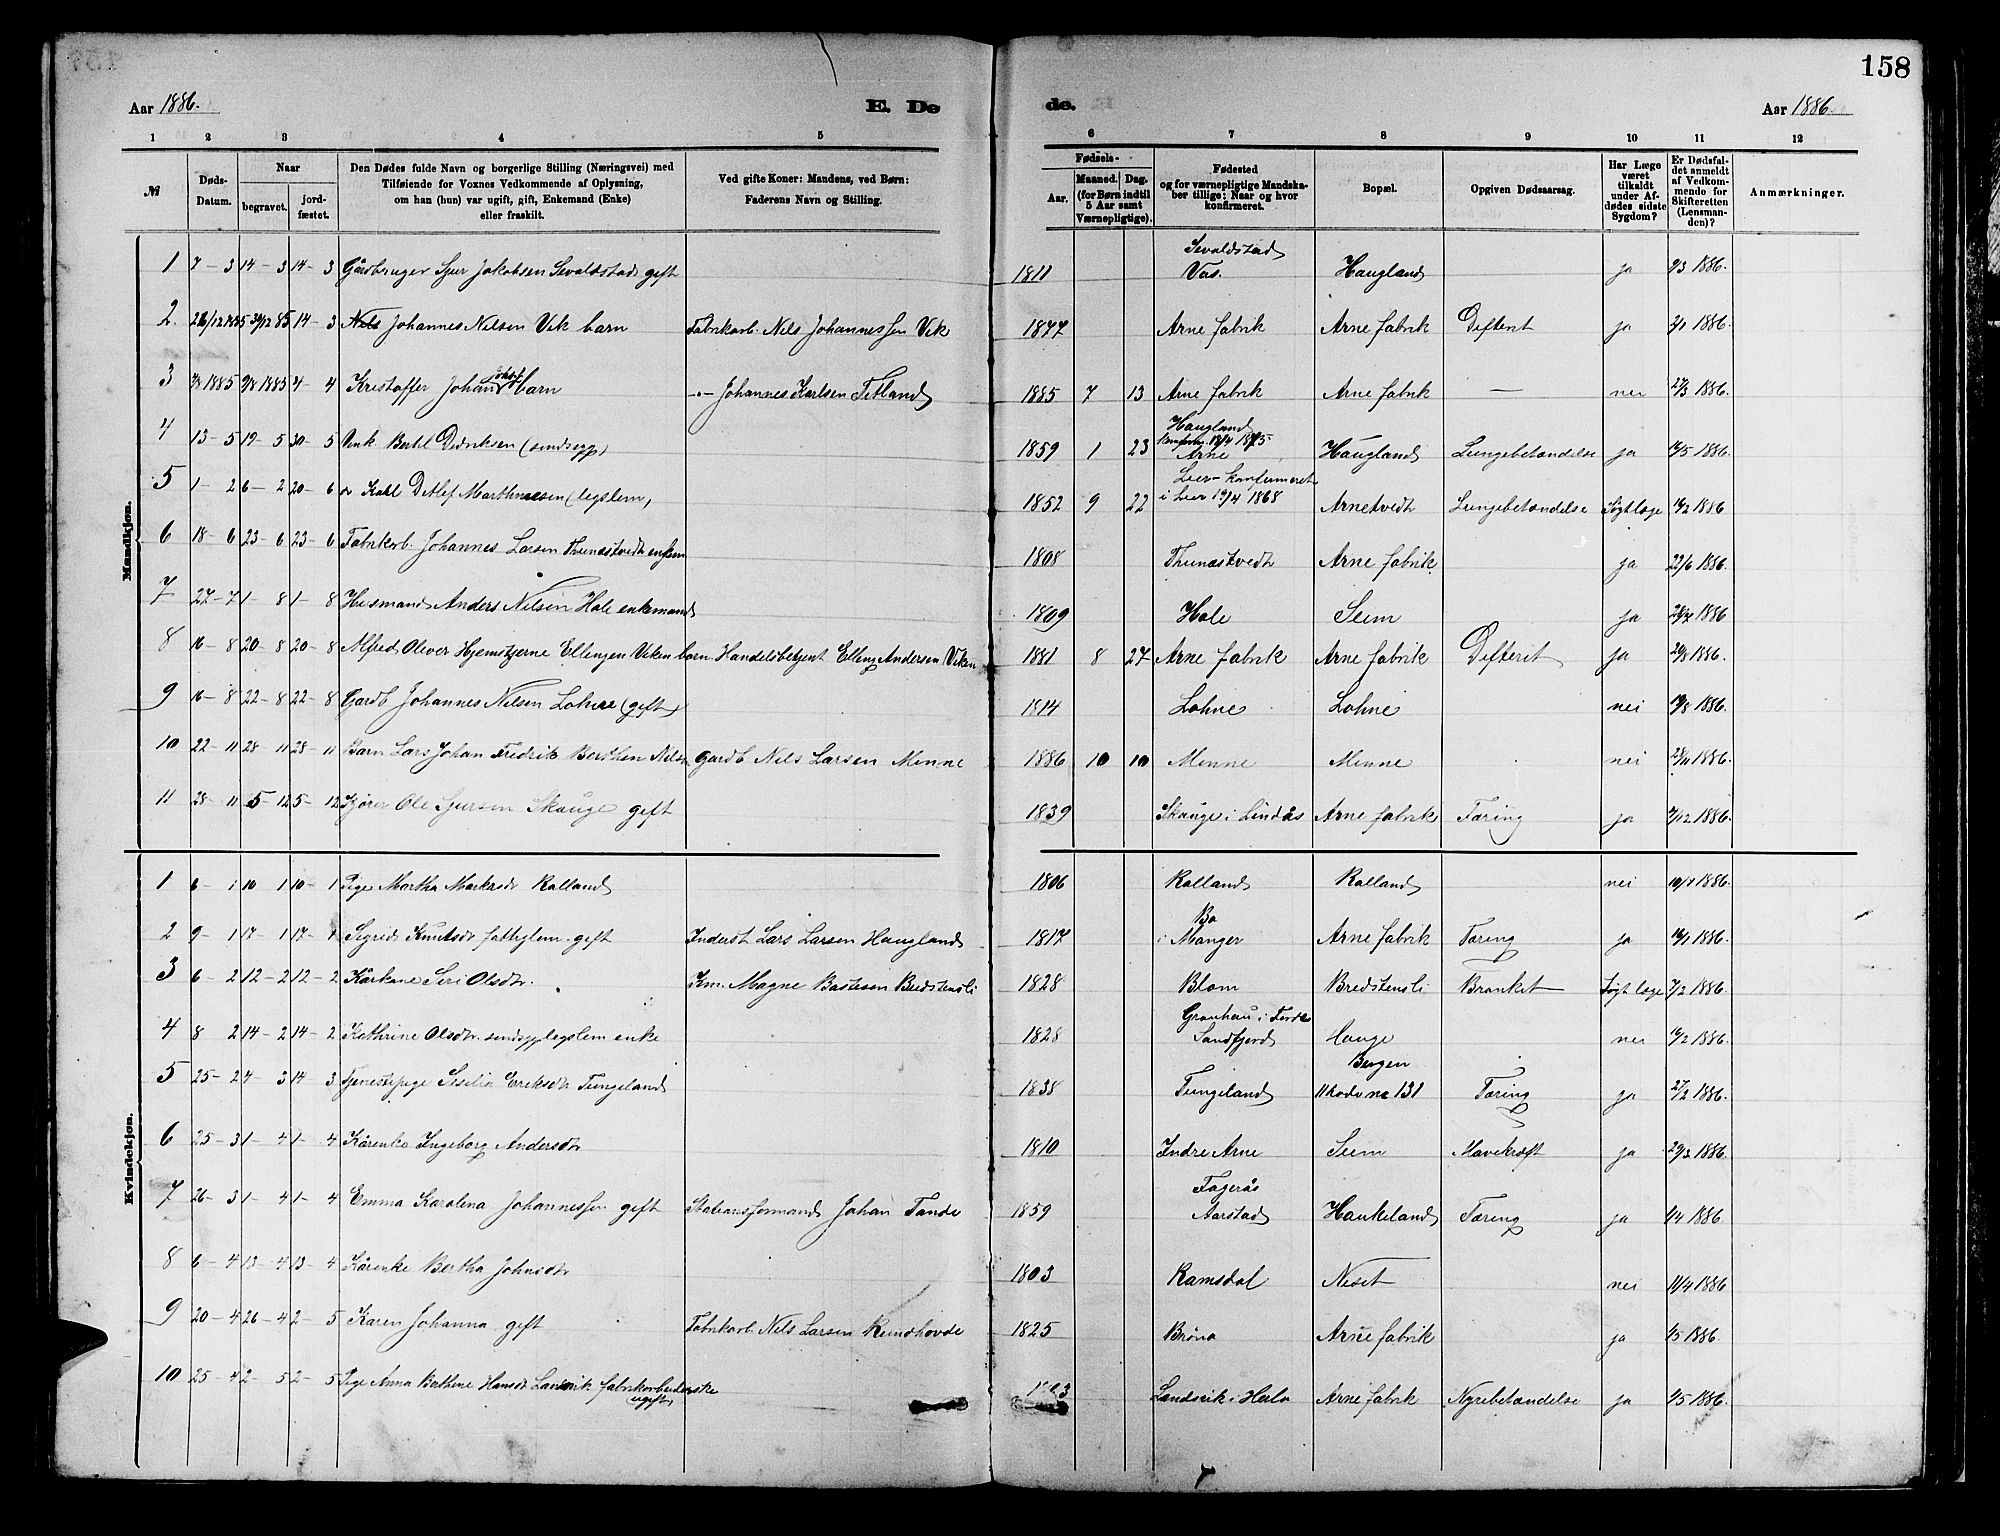 158
Aar 1886. E. De de. Aar 1886.
1 2 3 4 5 6 7 8 9 10 11 12
№ Døds-Datum. Naar begravet. jordfæstet. Den Dødes fulde Navn og borgerlige Stilling (Næringsvei) med Tilføiende for Voxnes Vedkommende af Oplysning, om han (hun) var ugift, gift, Enkemand (Enke) eller fraskilt. Ved gifte Koner: Mandens, ved Børn: Faderens Navn og Stilling. Fødsels- Aar. Maaned. Dag. (for Børn indtil 5 Aar samt Værnepligtige). Fødested og for værnepligtige Mandskaber tillige: Naar og hvor konfirmeret. Bopæl. Opgiven Dødsaarsag. Har Læge været tilkaldt under Afdødes sidste Sygdom? Er Dødsfaldet anmeldt af Vedkommende for Skifteretten (Lensmanden)? Anmærkninger.
Mandkjøn.
1 7-3 14-3 14-3 Gårdbruger Sjur Jakobsen Sevaldstad gift 1811 Sevaldstad Vos. Haugland ja 9/3 1886.
2. 14-3 Johannes Nilsen Vik barn Fabrikarb. Nils Johannessen Vik 1877 Arne fabrik Arne fabrik Difterit ja 2/1 1886.
3 9/8 1885 4-4 Kristoffer Johan barn -"- Johannes Karlsen Titland 1885 7 13 Arne fabrik Arne fabrik — nei 27/3 1886.
4 13-5 19-5 30-5 Bertel Didriksen (sindssyg) 1859 1 23 Haugland Arne Haugland Lungebetændelse ja 1886.
5 1-2 6-2 20-6 Karl Detlef Marthinesen (legslem, 1852 9 22 Lier-konfirmeret i Lier 19/4 1868 Arnetvedt Lungebetændelse Søgt læge 16/2 1886
6 18-6 23-6 23-6 Fabrikarb. Johannes Larsen Thunestvedt enkem 1808 Thunestvedt Arne fabrik ja 22/6 1886.
7 27-7 1-8 1-8 Husmand Anders Nilsen Hole enkemand 1809 Hole Seim ja 1886
8 16-8 20-8 20-8 Alfred Oliver Hjemstjerne Ellingen Viken barn Handelsbetjent Elling Andersen Viken 1881 8 27 Arne fabrik Arne fabrik Difterit ja 20/8 1886.
9 16-8 22-8 22-8 Gardb Johannes Nilsen Lohne (gift) 1814 Lohne Lohne nei 19/8 1886.
10 22-11 28-11 28-11 Barn Lars Johan Fredrik Berthen Nilsen Gardb Nils Larsen Minne 1886 10 10 Minne Minne nei 28/11 1886.
11 28-11 5-12 5-12 Kjører Ole Sjursen Skauge gift 1839 Skauge i Lindås Arne fabrik Tæring ja 1886.
Kvindekjøn.
1 6-1 10-1 10-1 Pige Martha Marksdr Kalland 1806 Kalland Kalland nei 1886.
2 9-1 17-1 17-1 Sigrid Knutsdr fattiglem gift Inderst Lars Larsen Haugland 1817 Bø i Manger Arne fabrik Tæring ja 16/1 1886.
3 6-2 12-2 12-2 Kårkone Siri Olsdtr. Km. Magne Bastesen Bredstensli 1828 Blom Bredstensli Bronket Søgt læge 7/2 1886.
4 8 2 14-2 14-2 Kathrine Olsdtr. sindssyg legslem enke 1828 i Førde Søndfjord Hauge nei 16/2 1886.
5 25-2 4-3 14 3 Tjenestepige Sesilia Eriksdr Tungeland 1838 Tungeland Bergen 11 Rode no 131 Tæring ja 27/2 1886.
6 25-3 1-4 1-4 Kårenke Ingeborg Andersdtr 1810 Indre Arne Seim Mavekræft ja 29/3 1886.
7 26-3 1-4 1-4 Emma Karolena Johannessen gift Stationsformand Johan Tande 1859 Fagerås Aarstad Haukeland Tæring ja 1/4 1886.
8 6-4 13-4 13-4 Kårenke Bertha Johnsdtr 1803 Ramsdal Neset nei 11/4 1886.
9 20-4 26-4 2-5 Karen Johanna gift Fabrikarb Nils Larsen Rundhovde 1825 Brøna Arne fabrik ja 1886.
10 25-4 2-5 2-5 Pige Anna Bertine Hansdr Landsvik fabrikarbeiderske ugift Landsvik i Herlø Arne fabrik Nyrebetændelse ja 1886.